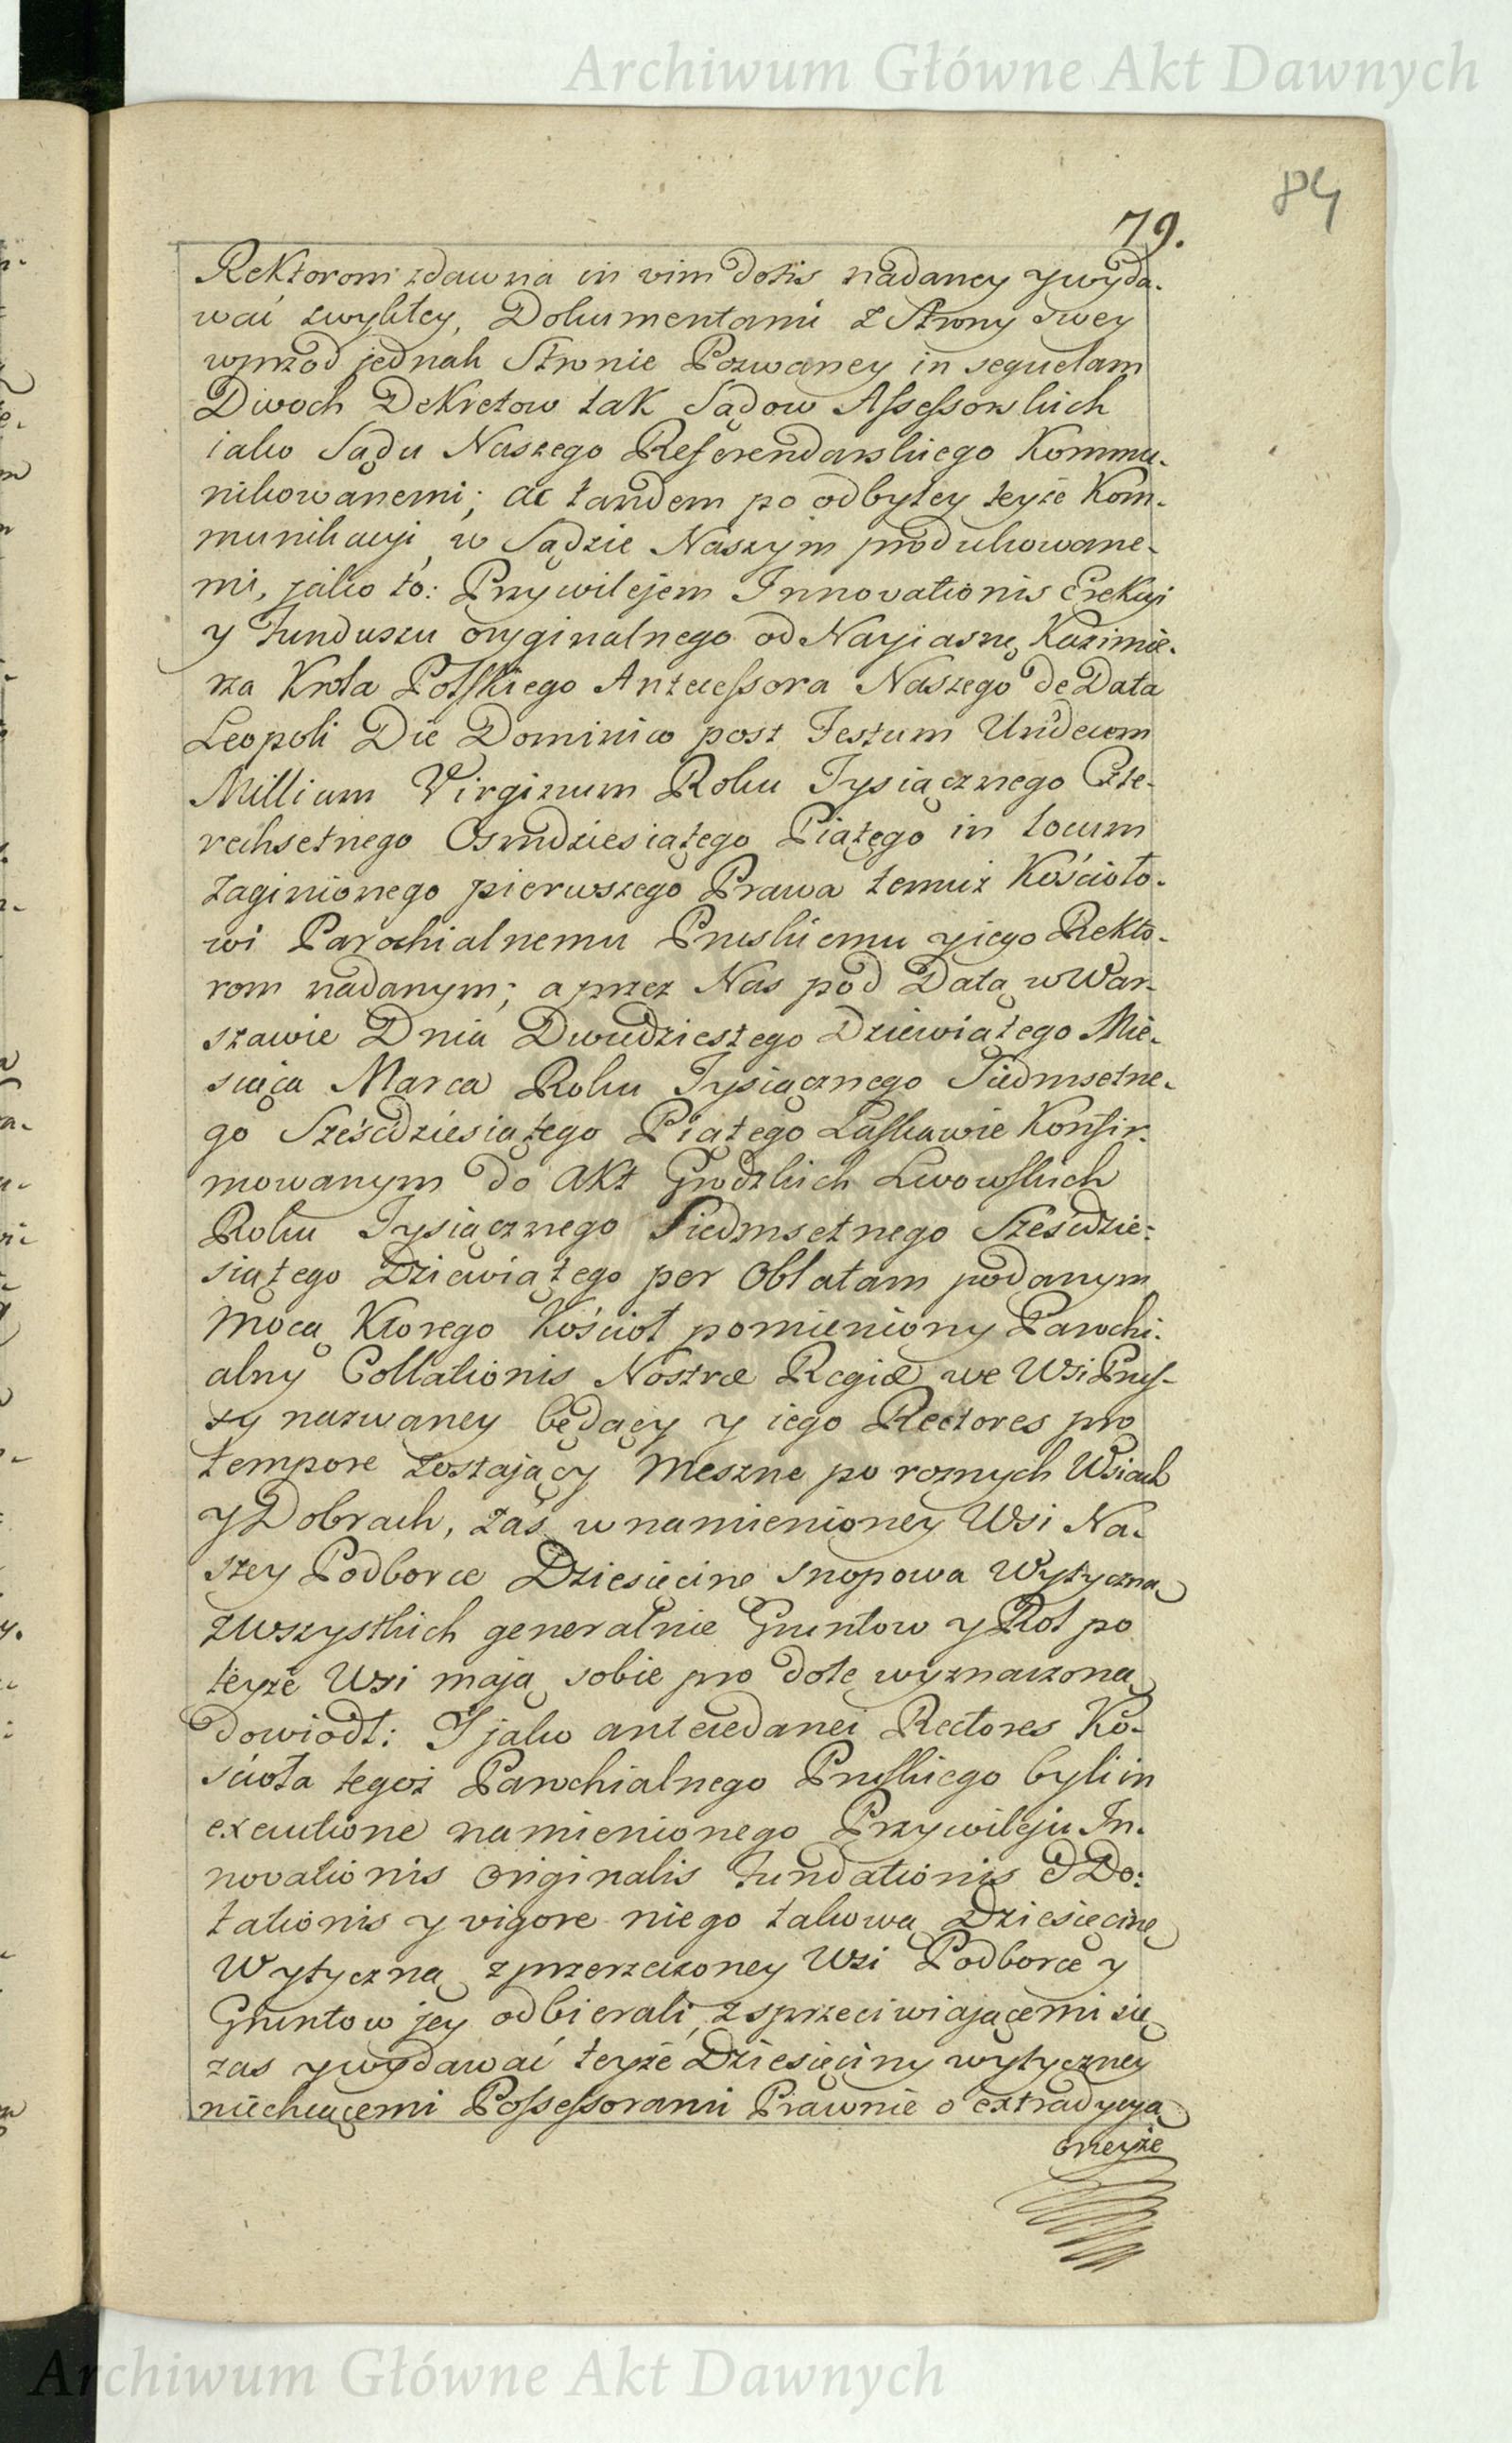 Archiwum Główne Akt Dawnych
84
79.
Rektorom zdawna in vim dotis nadaney y wyda-
wać zwykłey, Dokumentami z Strony swey
wprzod jednak Stronie Pozwaney in sequelam
Dwoch Dekretow tak Sądow Assessorskich
iako Sądu Naszego Referendarskiego Kommu-
nikowanemi; ac tandem po odbytey teyże Kom-
munikacyi w Sądzie Naszym produkowane-
mi, jako to: Przywilejem Innovationis Erekcyi
y Funduszu oryginalnego od Nayiasnę Kazimie-
rza Krola Polskiego Antecessora Naszego de Data
Leopoli Die Dominico post Festum Undecem
Millium Virginum Roku Tysiącznego Czte-
rechsetnego Osmdziesiątego Piątego in locum
zaginionego pierwszego Prawa temuż Kościoło-
wi Parochialnemu Pruskiemu y iego Rekto-
rom nadanym; a przez Nas pod Datą w War-
szawie Dnia Dwudziestego Dziewiątego Mie-
siąca Marca Roku Tysiącznego Siedmsetne-
go Sześćdziesiątego Piątego Łaskawie Konfir-
mowanym do Akt Grodzkich Lwowskich
Roku Tysiącznego Siedmsetnego Sześćdzie-
siątego Dziewiątego per Oblatam podanym
Mocą Ktorego Kościoł pomieniony Parochi-
alny Collationis Nostræ Regiæ we Wsi Prus-
sy nazwaney będący y iego Rectores pro
tempore zostający Meszne po roznych Wsiach
y Dobrach, zaś w namienioney Wsi Na-
szey Podborce Dziesięcinę snopowa Wytyczną
z wszystkich generalnie Gruntow y Rol po
teyże Wsi mają sobie pro dote wyznaczoną
dowiodł: I jako antecedanei Rectores Ko-
ścioła tegoż Parochialnego Pruskiego byli in
executione namienionego Przywileju In-
novationis originalis Fundationis & Do-
tationis y vigore niego takową Dziesięcinę
Wytyczną z przerzeczoney Wsi Podborce y
Gruntow jey odbierali, z sprzeciwiającemi się
zas y wydawać teyże Dziesięciny wytyczney
niechcącemi Possessorami Prawnie o extradycyą
oneyże
Archiwum Główne Akt Dawnych